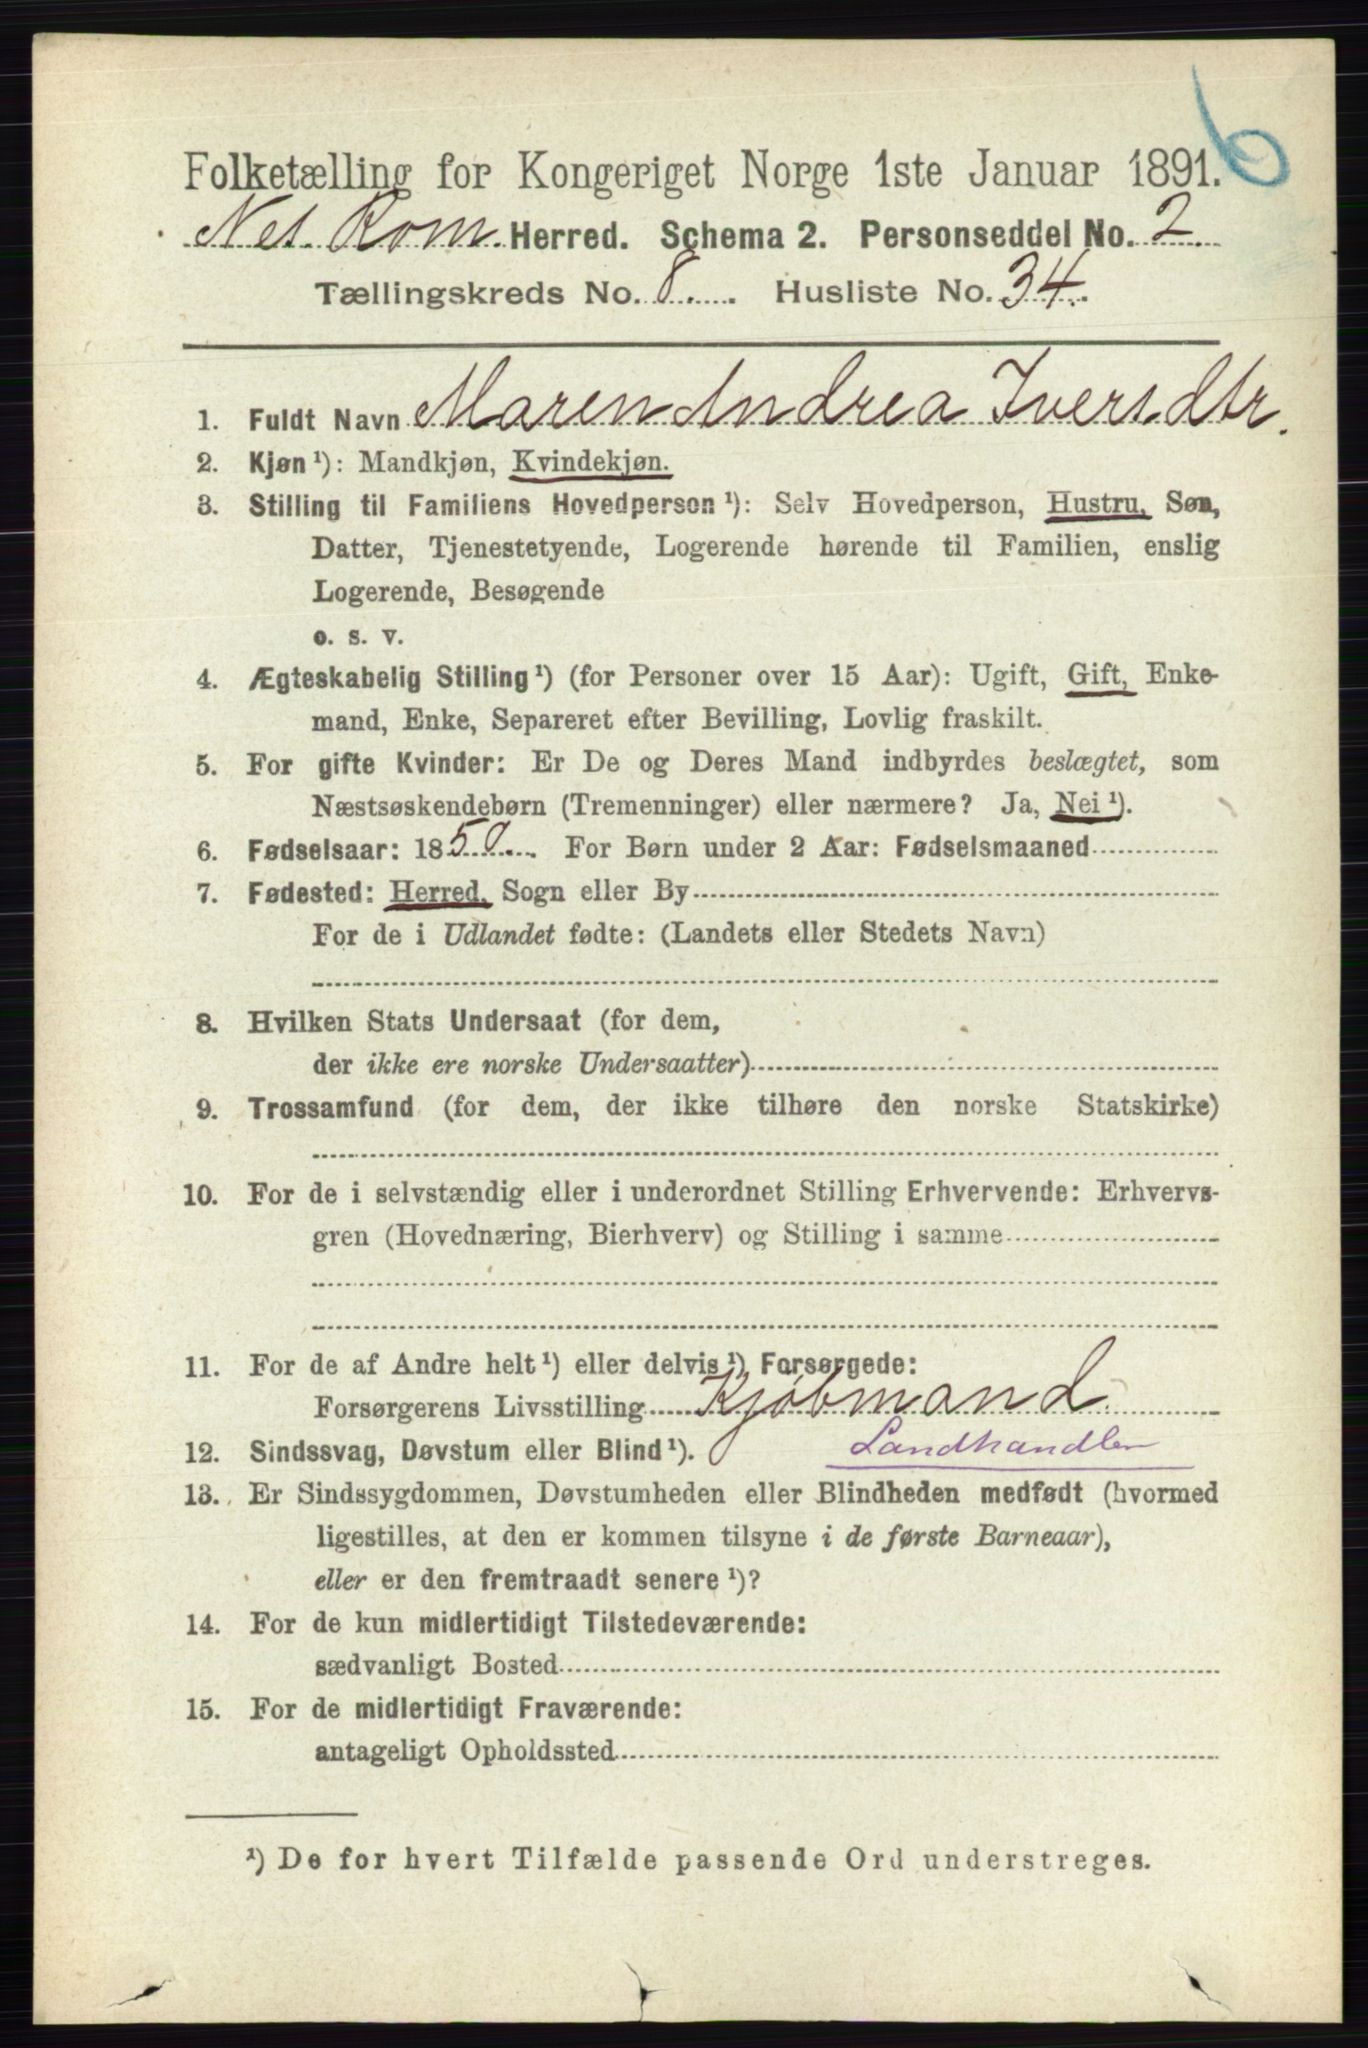 6
Folketælling for Kongeriget Norge 1ste Januar 1891.
Nes Rom. Herred. Schema 2. Personseddel No. 2.
Tællingskreds No. 8. Husliste No. 34.
1. Fuldt Navn Maren Andrea Iversdtr.
2. Kjøn ¹): Mandkjøn, Kvindekjøn.
3. Stilling til Familiens Hovedperson ¹): Selv Hovedperson, Hustru, Søn,
Datter, Tjenestetyende, Logerende hørende til Familien, enslig
Logerende, Besøgende
o. s. v.
4. Ægteskabelig Stilling ¹) (for Personer over 15 Aar): Ugift, Gift, Enke-
mand, Enke, Separeret efter Bevilling, Lovlig fraskilt.
5. For gifte Kvinder: Er De og Deres Mand indbyrdes beslægtet, som
Næstsøskendebørn (Tremenninger) eller nærmere? Ja, Nei ¹).
6. Fødselsaar: 1850. For Børn under 2 Aar: Fødselsmaaned
7. Fødested: Herred, Sogn eller By
For de i Udlandet fødte: (Landets eller Stedets Navn)
8. Hvilken Stats Undersaat (for dem,
der ikke ere norske Undersaatter)
9. Trossamfund (for dem, der ikke tilhøre den norske Statskirke)
10. For de i selvstændig eller i underordnet Stilling Erhvervende: Erhvervs-
gren (Hovednæring, Bierhverv) og Stilling i samme
11. For de af Andre helt ¹) eller delvis ¹) Forsørgede:
Forsørgerens Livsstilling Kjøbmand
12. Sindssvag, Døvstum eller Blind ¹). Landhandler
13. Er Sindssygdommen, Døvstumheden eller Blindheden medfødt (hvormed
ligestilles, at den er kommen tilsyne i de første Barneaar),
eller er den fremtraadt senere ¹)?
14. For de kun midlertidigt Tilstedeværende:
sædvanligt Bosted
15. For de midlertidigt Fraværende:
antageligt Opholdssted
¹) De for hvert Tilfælde passende Ord understreges.